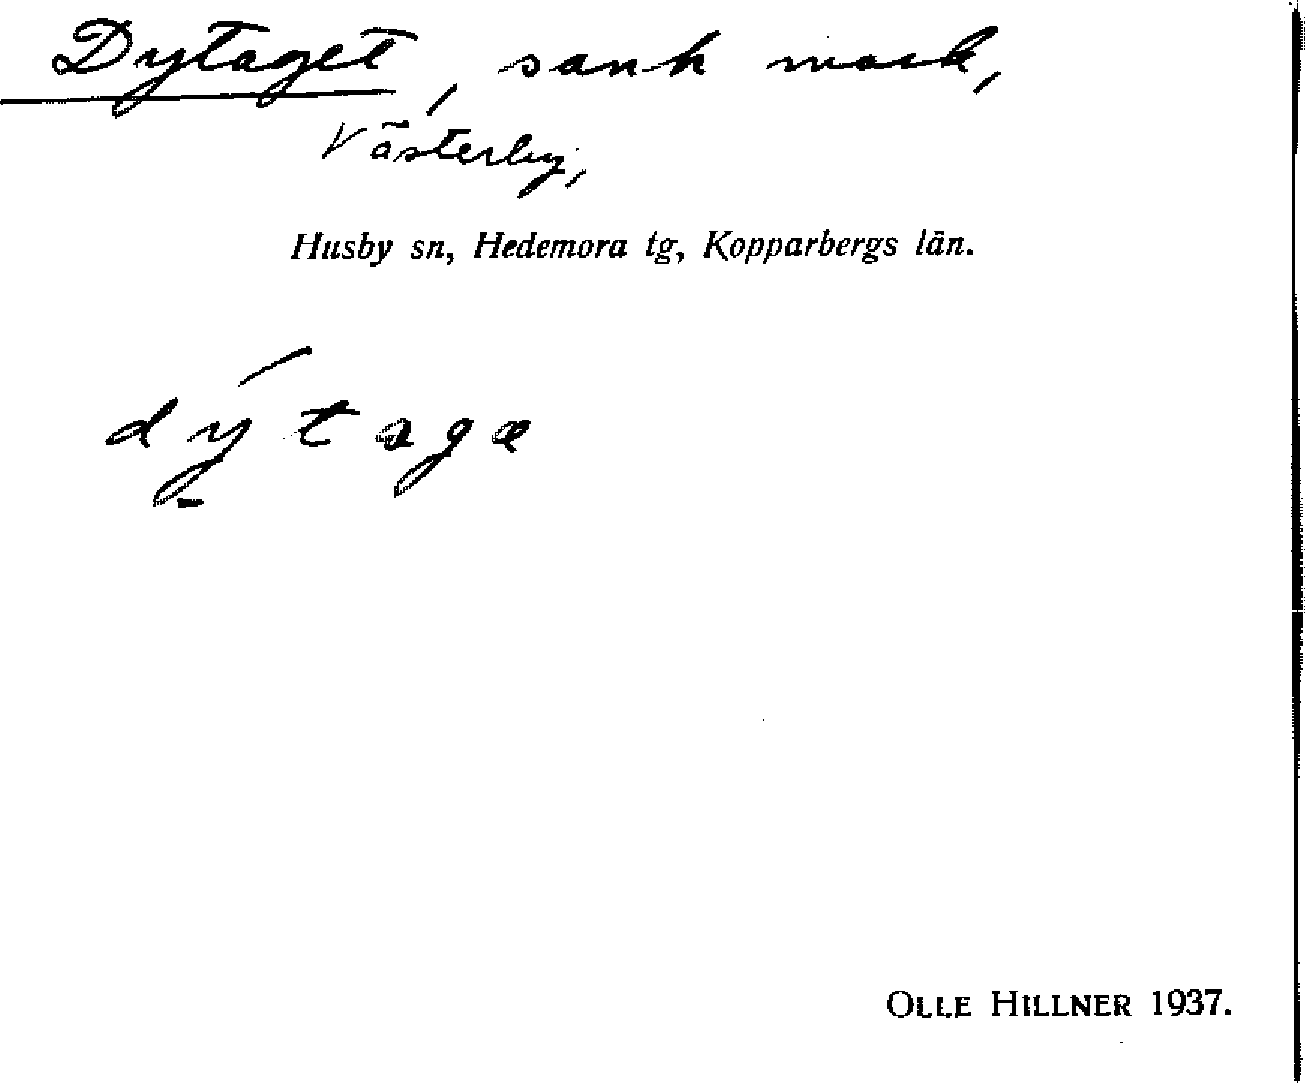 Dytaget, sank mark,
Västerby,
Husby sn, Hedemora tg, Kopparbergs län.
dýtagæ
OLLE HILLNER 1937.